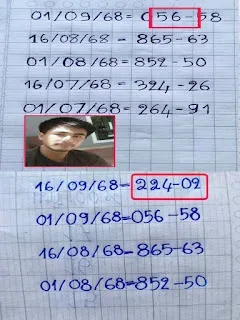 01/09/68=056-58
16/08/68=865-63
01/08/68=852-50
16/07/68=324-26
01/07/68=264-91
16/09/68=224-02
01/09/68=056-58
16/08/68=865-63
01/08/68=852-50